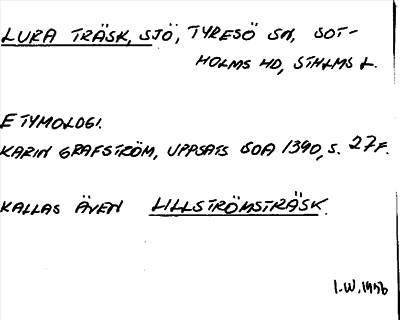 LURA TRÄSK, SJÖ, TYRESÖ SN, SOT-
HOLMS HD, STHLMS L.
ETYMOLOGI.
KARIN GRAFSTRÖM, UPPSATS SOA 1390, S. 27F.
KALLAS ÄVEN LILLSTRÖMSTRÄSK.
I.W. 1956